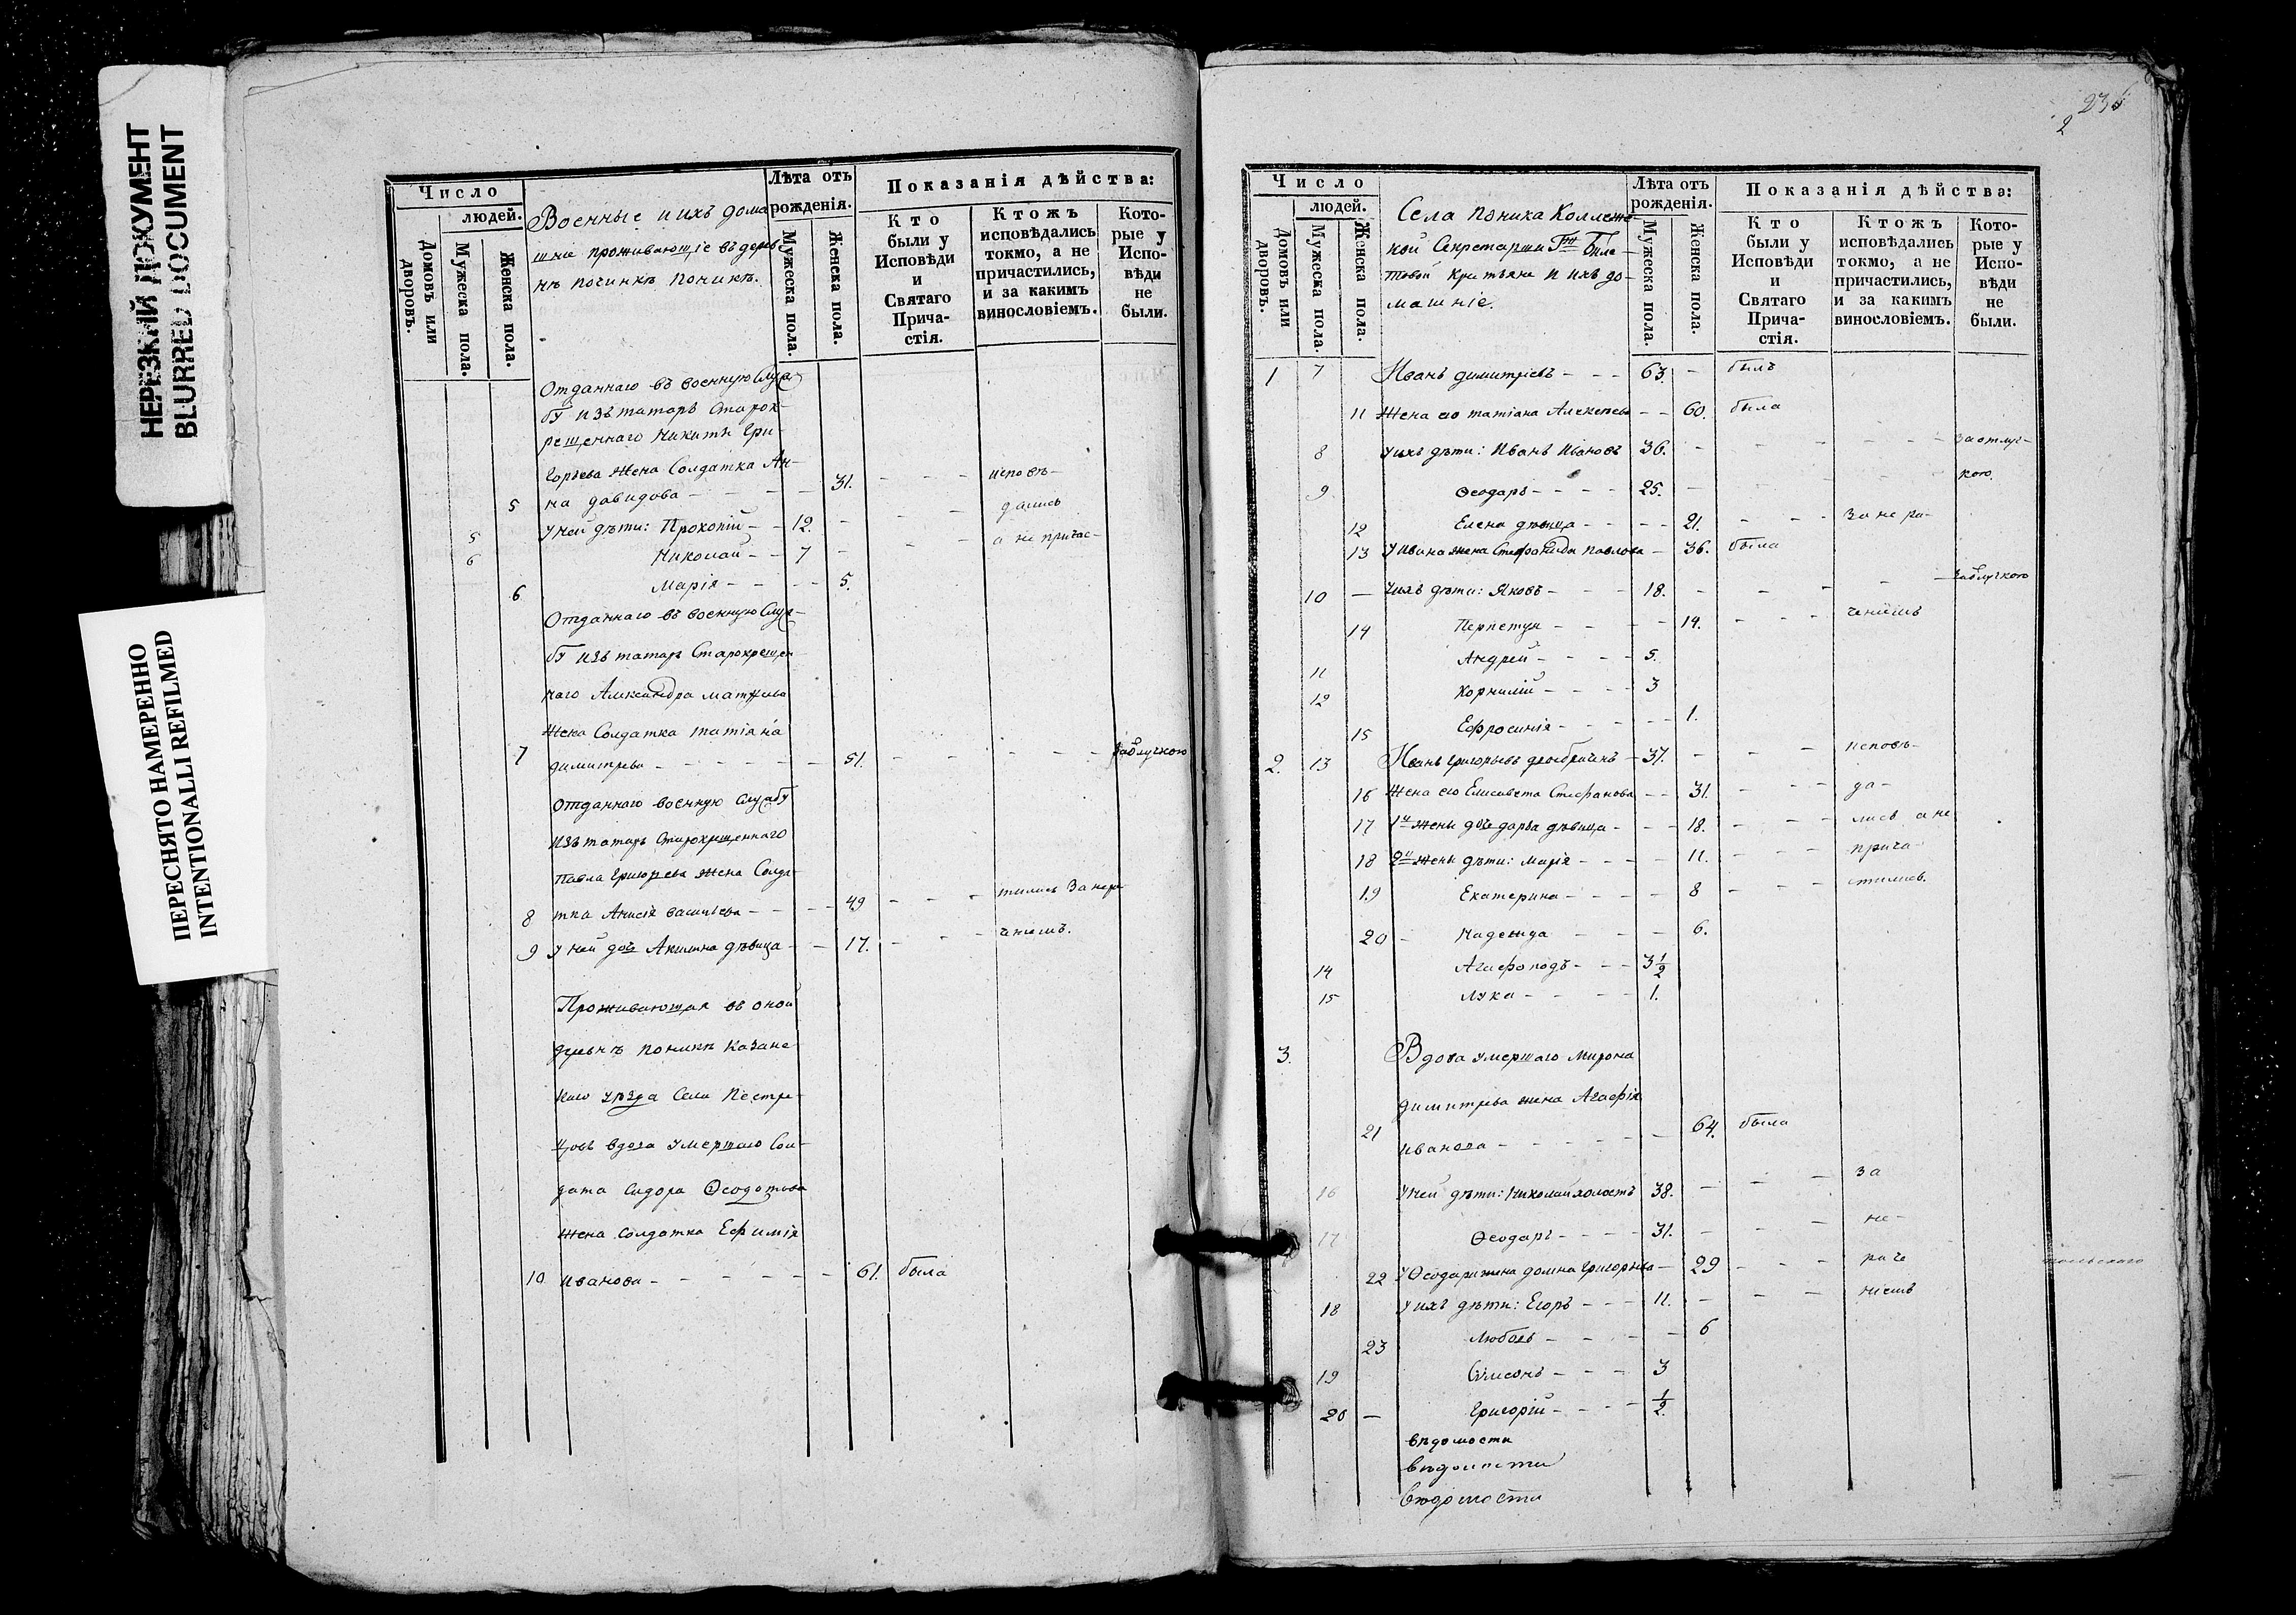 НЕРЕЗКИЙ ДОКУМЕНТ
BLURRED DOCUMENT
ПЕРЕСНЯТО НАМЕРЕННО
INTENTIONALLI REFILMED
Число
людей.
Домовъ или дворовъ.
Мужеска пола.
Женска пола.
Военные и ихъ дома
шніе проживающіе въ дерев
нѣ починкѣ Поникѣ.
Лѣта отъ рожденія.
Мужеска пола.
Женска пола.
Показанія дѣйства:
Кто были у Исповѣди и Святаго Прича-стія.
Ктожъ исповѣдались токмо, а не причастились, и за какимъ винословіемъ.
Кото-рые у Испо-вѣди не были.
Отданнаго въ военную Служ
бу изъ татаръ Старок-
рещеннаго Никиты Гри-
горьева жена Солдатка Ан-
5 на давидова - - - 31. - - - исповѣ-
дались
5 У ней дѣти: Прокопій - - 12. - - - а не причас-
6 Николай - - 7 -
6 Марія - - - 5.
Отданнаго въ военную Служ-
бу изъ татаръ Старокрещен
наго Александра матвѣева
жена Солдатка татіана
7 димитрева - - - 51. - - - - заотлучкою
Отданнаго военную Службу
изъ татаръ Старокрещеннаго
Павла Григорьева жена Солда-
8 тка Анисія васильева - - - 49 - - - тились За нера
9 У ней дочь Акилина дѣвица - - 17. - - - чніемъ.
Проживающая въ оной
деревнѣ поникѣ Казанс-
каго уѣзда Села Пестре-
цовъ вдова умершаго Сол-
дата Сидора Ѳедотова
жена Солдатка Ефимія
10 Иванова - - - - - 61. была
235
2
Число
людей.
Домовъ или дворовъ.
Мужеска пола.
Женска пола.
Села Поника Коллежс-
кой Секретарши Г-жи
товой Крестьяне и ихъ до-
машніе.
Лѣта отъ рожденія.
Мужеска пола.
Женска пола.
Показанія дѣйства:
Кто были у Исповѣди и Святаго Прича-стія.
Ктожъ исповѣдались токмо, а не причастились, и за какимъ винословіемъ.
Кото-рые у Испо-вѣди не были.
1 7 Иванъ димитріевъ - - - 63. - былъ
11 Жена его татіана Алексѣева - - 60. была
8 У ихъ дѣти: Иванъ Ивановъ 36. - - - - - заотлуч-
кою.
9 Ѳеодаръ - - - - 25. -
12 Елена дѣвица - - - - 21. - - За не ра-
13 У Ивана жена Стефанида павлова - 36. была
10 - У ихъ дѣти: Яковъ - - - 18. - - - - заотлучкою
14 Перпетуя - - - 14. - - - чніемъ
11 Андрей - - - - 5.
12 Корнилій - - - - 3
15 Ефросинія - - - - - 1.
2. 13 Иванъ Григорьевъ - 37. - - - исповѣ-
16 Жена его Елисавета Стефанова - - 31. - - - да-
17 1й жены дочь дарья дѣвица - - - 18. - - - лись а не
18 2й жены дѣти: Марія - - - - 11. - - - прича-
19 Екатерина - - - - 8 - - - стились.
20 - Надежда - - - - 6.
14 Агафоподъ - - - 3 1/2
15 Лука - - - - 1.
3. Вдова умершаго Мирона
димитрева жена Агафія
21 иванова - - - - - 64. была
16 У ней дѣти: Николай холостъ 38. - - - за
17 Ѳеодаръ - - - - 31. - - не-
22 У Ѳеодара жена домна Григорьева - 29 - - - раче
18 У ихъ дѣти: Егоръ - - - 11. - - - ніемъ
23 Любовь - - - - 6
19 Симеонъ - - - 3
20 - Григорій - - - - 1/2.
вѣдомости
вѣдомости
вѣдомости